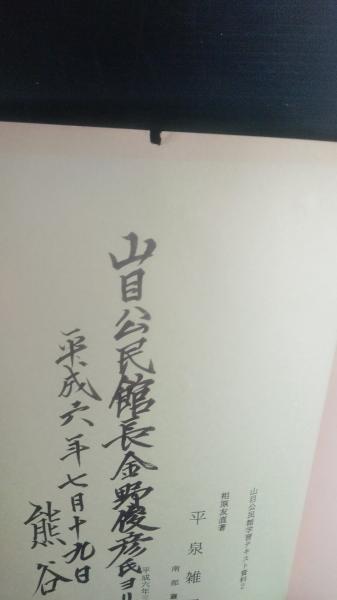 山目公民館学習テキスト資料2
相原友直著
平泉雑
南部
平成六年三
山目公民館長金野俊彦氏ヨリ
平成六年七月十九日
熊谷